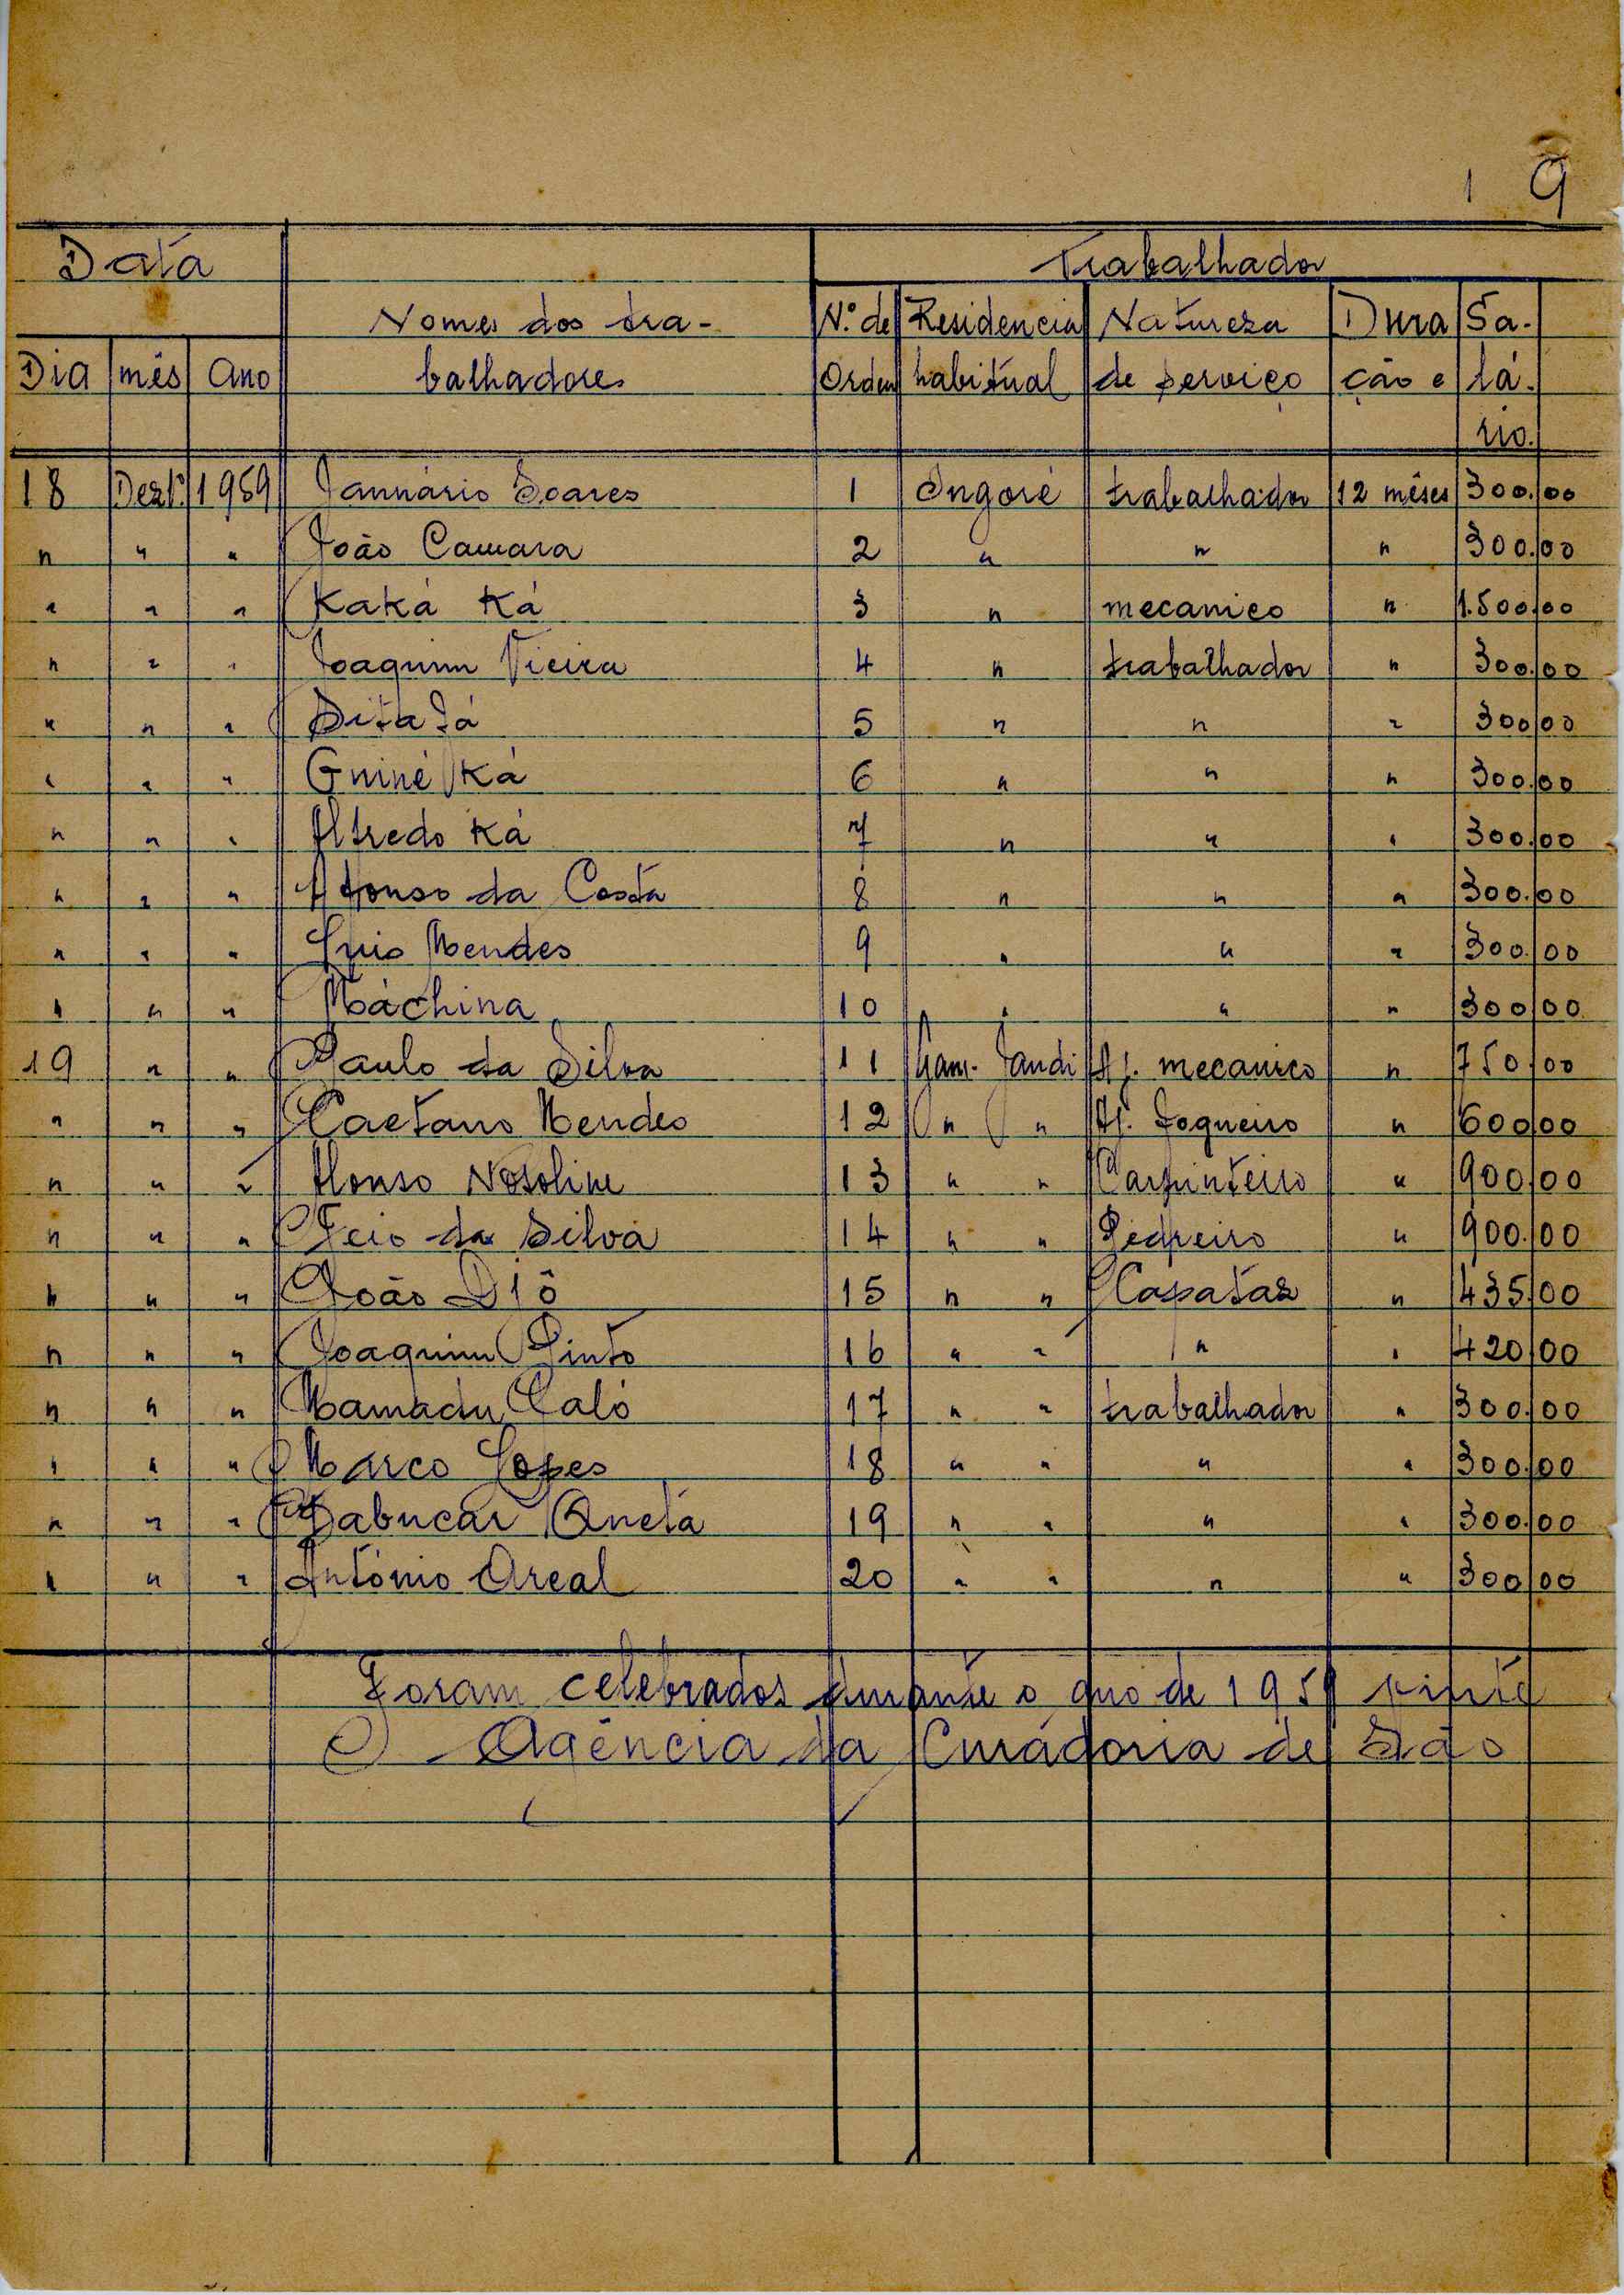 1 9
Data Trabalhador
Nomes dos tra- N.º de Residencia Natureza Dura Sa-
Dia mês Ano balhadores Orden habitual de serviço ção e lá-
rio.
18 Dezbº 1959 Januário Soares 1 Ingoré trabalhador 12 mêses 300.00
" " " João Camara 2 " " " 300.00
" " " Kaká Ká 3 " mecanico " 1.500.00
" " " Joaquim Vieira 4 " trabalhador " 300.00
" " " 5 " " " 300.00
" " " Guiné Ká 6 " " " 300.00
" " " Alfredo Ká 7 " " " 300.00
" " " Afonso da Costa 8 " " " 300.00
" " " Luis Mendes 9 " " " 300.00
" " " Máchina 10 " " " 300.00
19 " " Paulo da Silva 11 Gam. Jandi Aj. mecanico " 750.00
" " " Caetano Mendes 12 " " Aj. Fogueiro " 600.00
" " " Afonso Nosoline 13 " " Carpinteiro " 900.00
" " " da Silva 14 " " Pedreiro " 900.00
" " " João Djô 15 " " Capataz " 435.00
" " " Joaquim Pinto 16 " " " " 420.00
" " " Mamadu Caló 17 " " trabalhador " 300.00
" " " Marco Lopes 18 " " " " 300.00
" " " 19 " " " " 300.00
" " " António Areal 20 " " " " 300.00
Foram celebrados durante o ano de 1959 vinte
Agência da Curadoria de